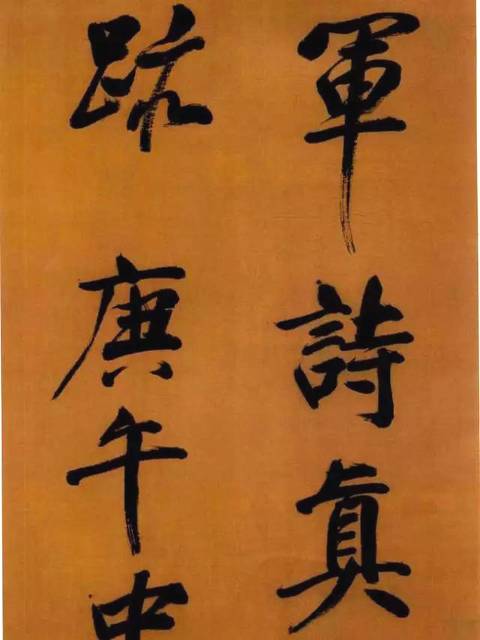 軍詩真
跡庚午中